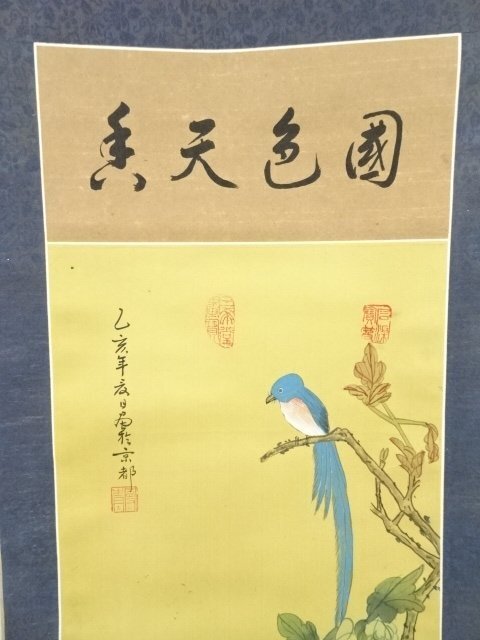 國色天香
乙亥年夏日畫於京都